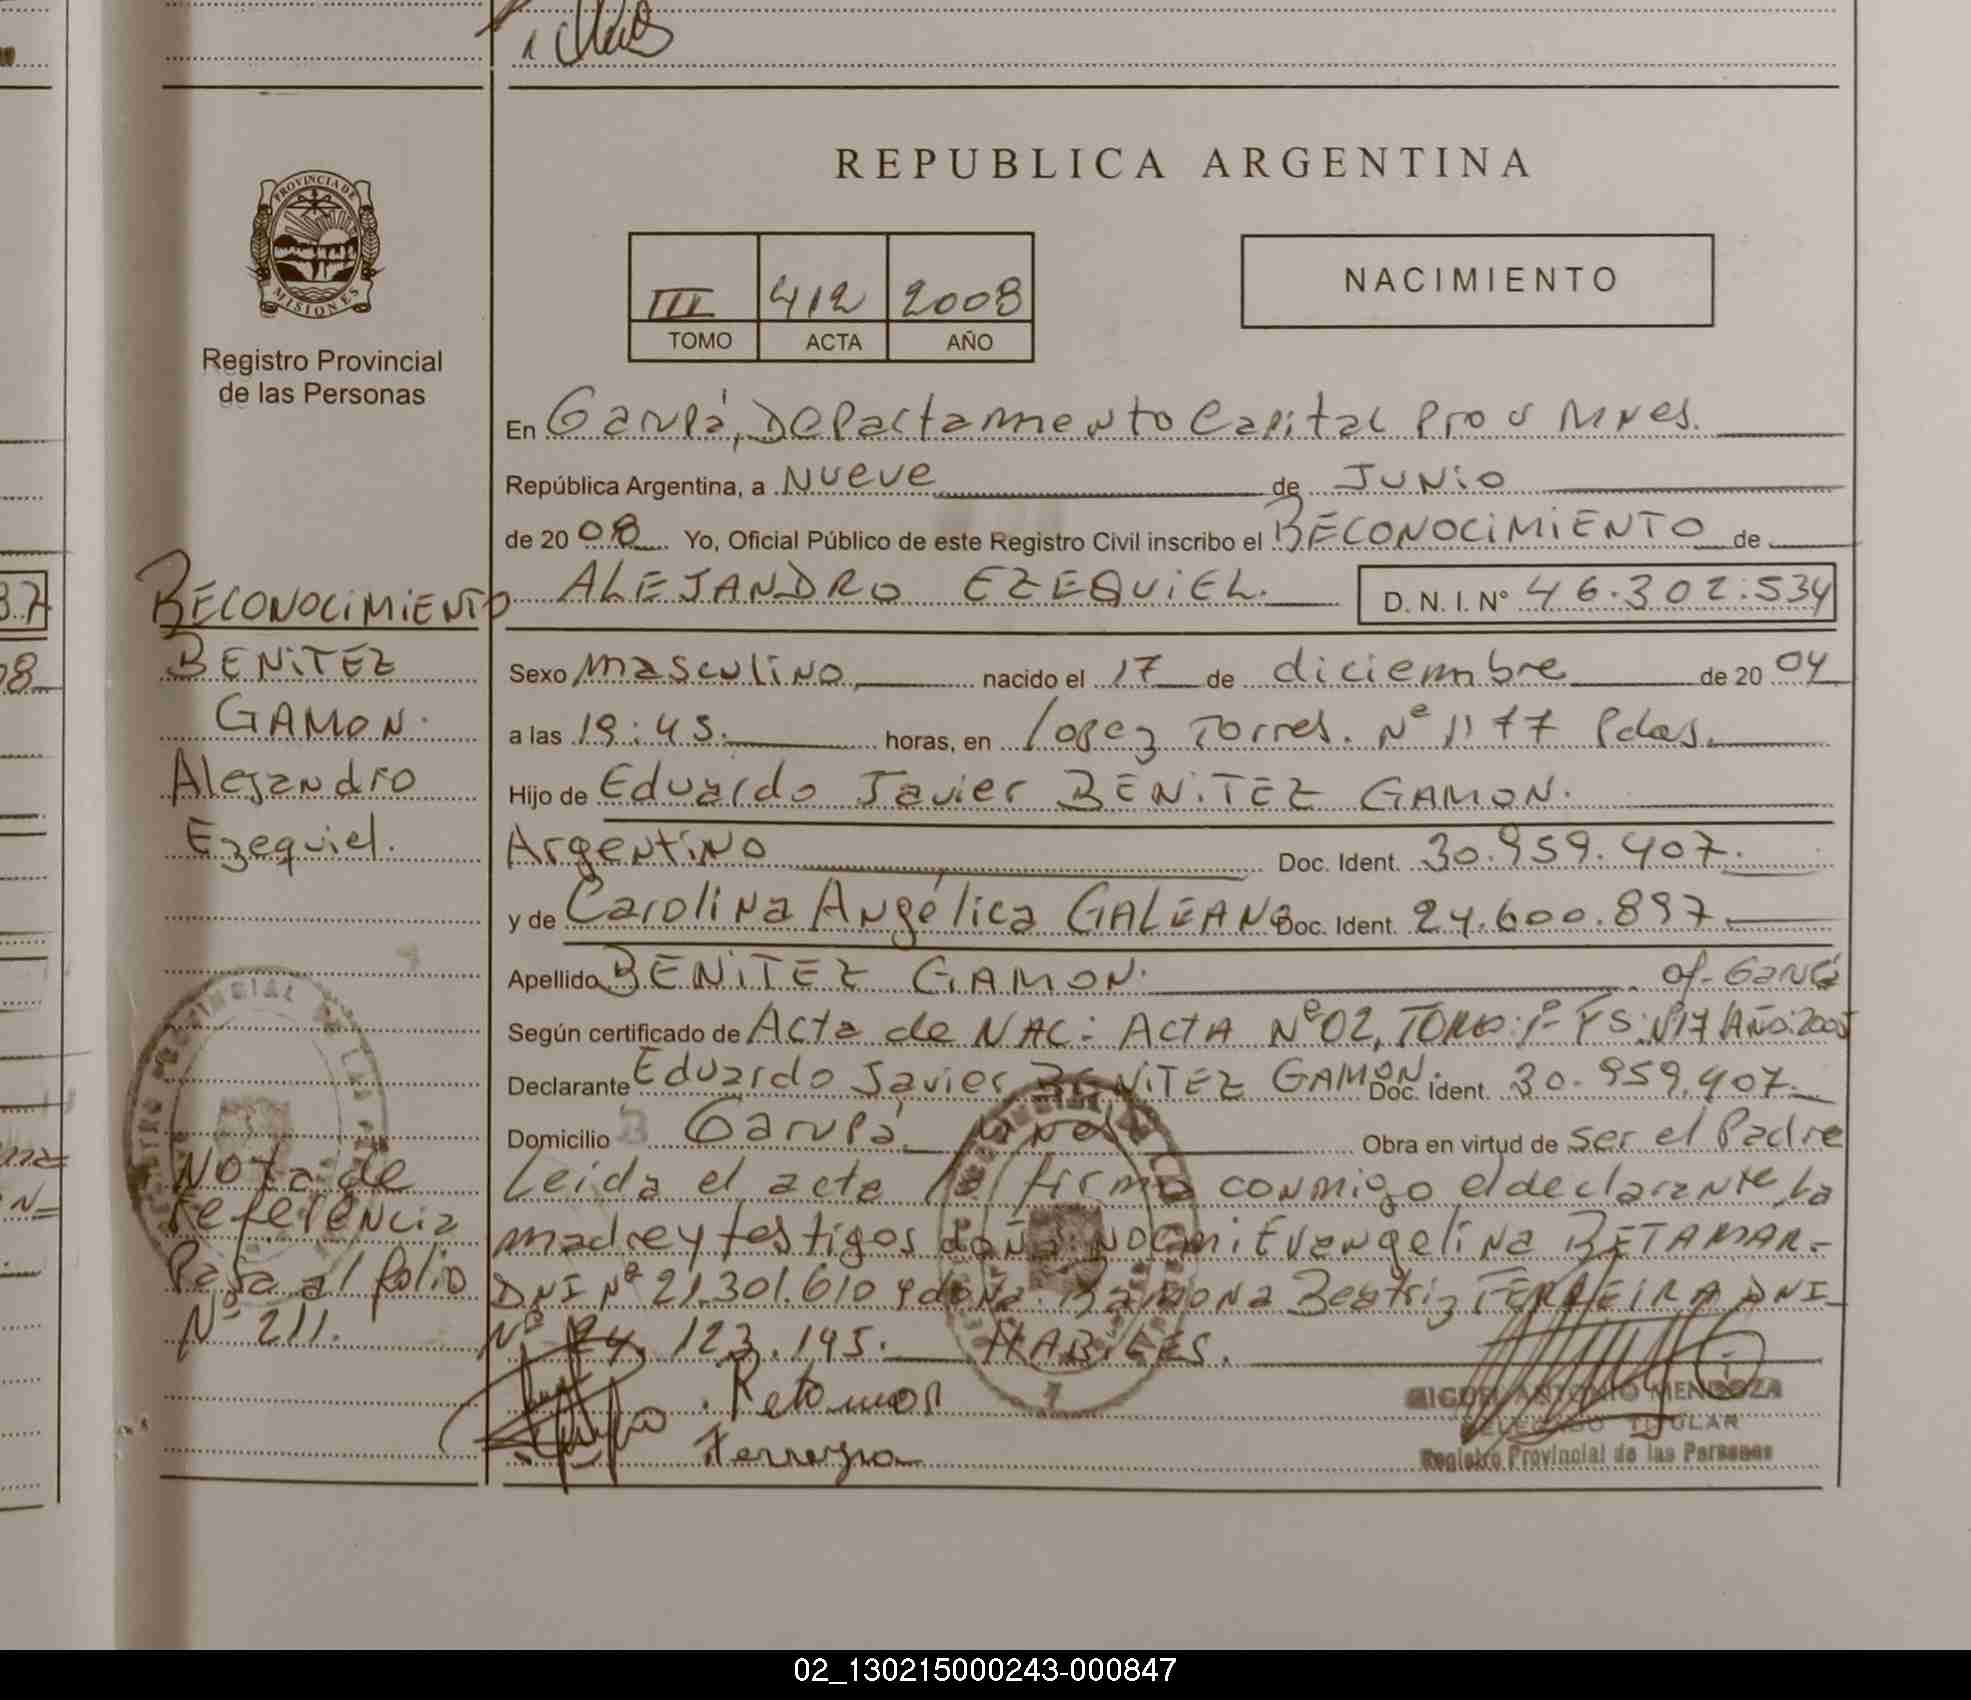 REPUBLICA ARGENTINA
PROVINCIA DE MISIONES
Registro Provincial
de las Personas
III 412 2008
TOMO ACTA AÑO
NACIMIENTO
En Garupá, Departamento Capital Prov Mnes.
República Argentina, a Nueve de Junio
de 20 08 Yo, Oficial Público de este Registro Civil inscribo el RECONOCIMIENTO de
ALEJANDRO EZEQUIEL. D. N. I. Nº 46.302.534
Sexo masculino, nacido el 17 de diciembre de 20 04
a las 19:45. horas, en Lopez Torres. Nº 1177 Pdas.
Hijo de Eduardo Javier BENITEZ GAMON.
Argentino Doc. Ident. 30.959.407.
y de Carolina Angélica GALEANO Doc. Ident. 24.600.897.
Apellido BENITEZ GAMON.
Según certificado de Acta de NAC: ACTA Nº 02, TOMO: Año: 2005
Declarante Eduardo Javier BENITEZ GAMON. Doc. Ident. 30.959.407.
Domicilio Garupá Mnes Obra en virtud de ser el Padre
Leida el acta firma conmigo el declarante, la
madre y testigos doña Noemi Evangelina RETAMAR-
DNI Nº 21.301.610 y doña Ramona Beatriz FERREIRA DNI
Nº 24.123.145. HABILES.
Retamar
Ferreyra
MIGUEL ANTONIO MENDOZA
DELEGADO TITULAR
Registro Provincial de las Personas
RECONOCIMIENTO
BENITEZ
GAMON.
Alejandro
Ezequiel.
Nota de
referencia
Pasa al folio
Nº 211.
02_130215000243-000847